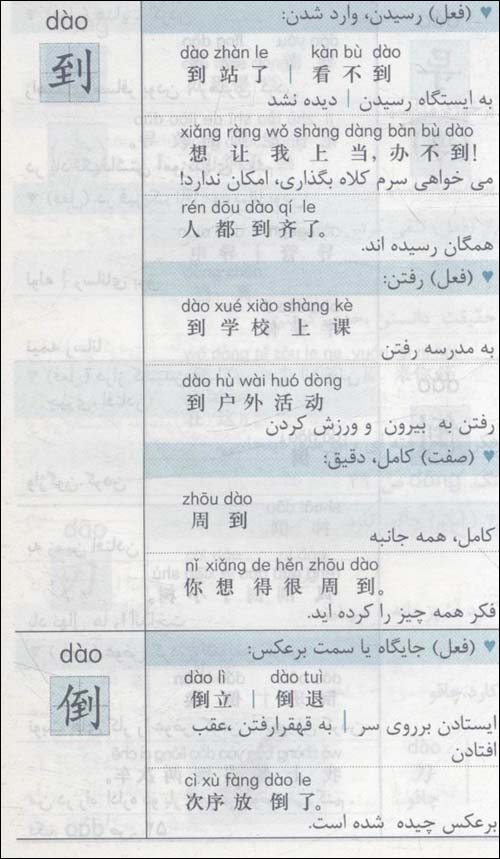 dào
到
♥ (فعل) رسیدن، وارد شدن:
dào zhàn le    kàn bù dào
到 站 了 | 看 不 到
به ایستگاه رسیدن | دیده نشد
xiǎng ràng wǒ shàng dàng bàn bù dào
想 让 我 上 当, 办 不 到!
می خواهی سرم کلاه بگذاری، امکان ندارد!
rén dōu dào qí le
人 都 到 齐 了。
همگان رسیده اند.
♥ (فعل) رفتن:
dào xué xiào shàng kè
到 学 校 上 课
به مدرسه رفتن
dào hù wài huó dòng
到 户 外 活 动
رفتن به بیرون و ورزش کردن
♥ (صفت) کامل، دقیق:
zhōu dào
周 到
کامل، همه جانبه
nǐ xiǎng de hěn zhōu dào
你 想 得 很 周 到。
فکر همه چیز را کرده اید.
dào
倒
♥ (فعل) جایگاه یا سمت برعکس:
dào lì    dào tuì
倒 立 | 倒 退
ایستادن برروی سر | به قهقرارفتن ،عقب
افتادن
cì xù fàng dào le
次 序 放 倒 了。
برعکس چیده شده است.